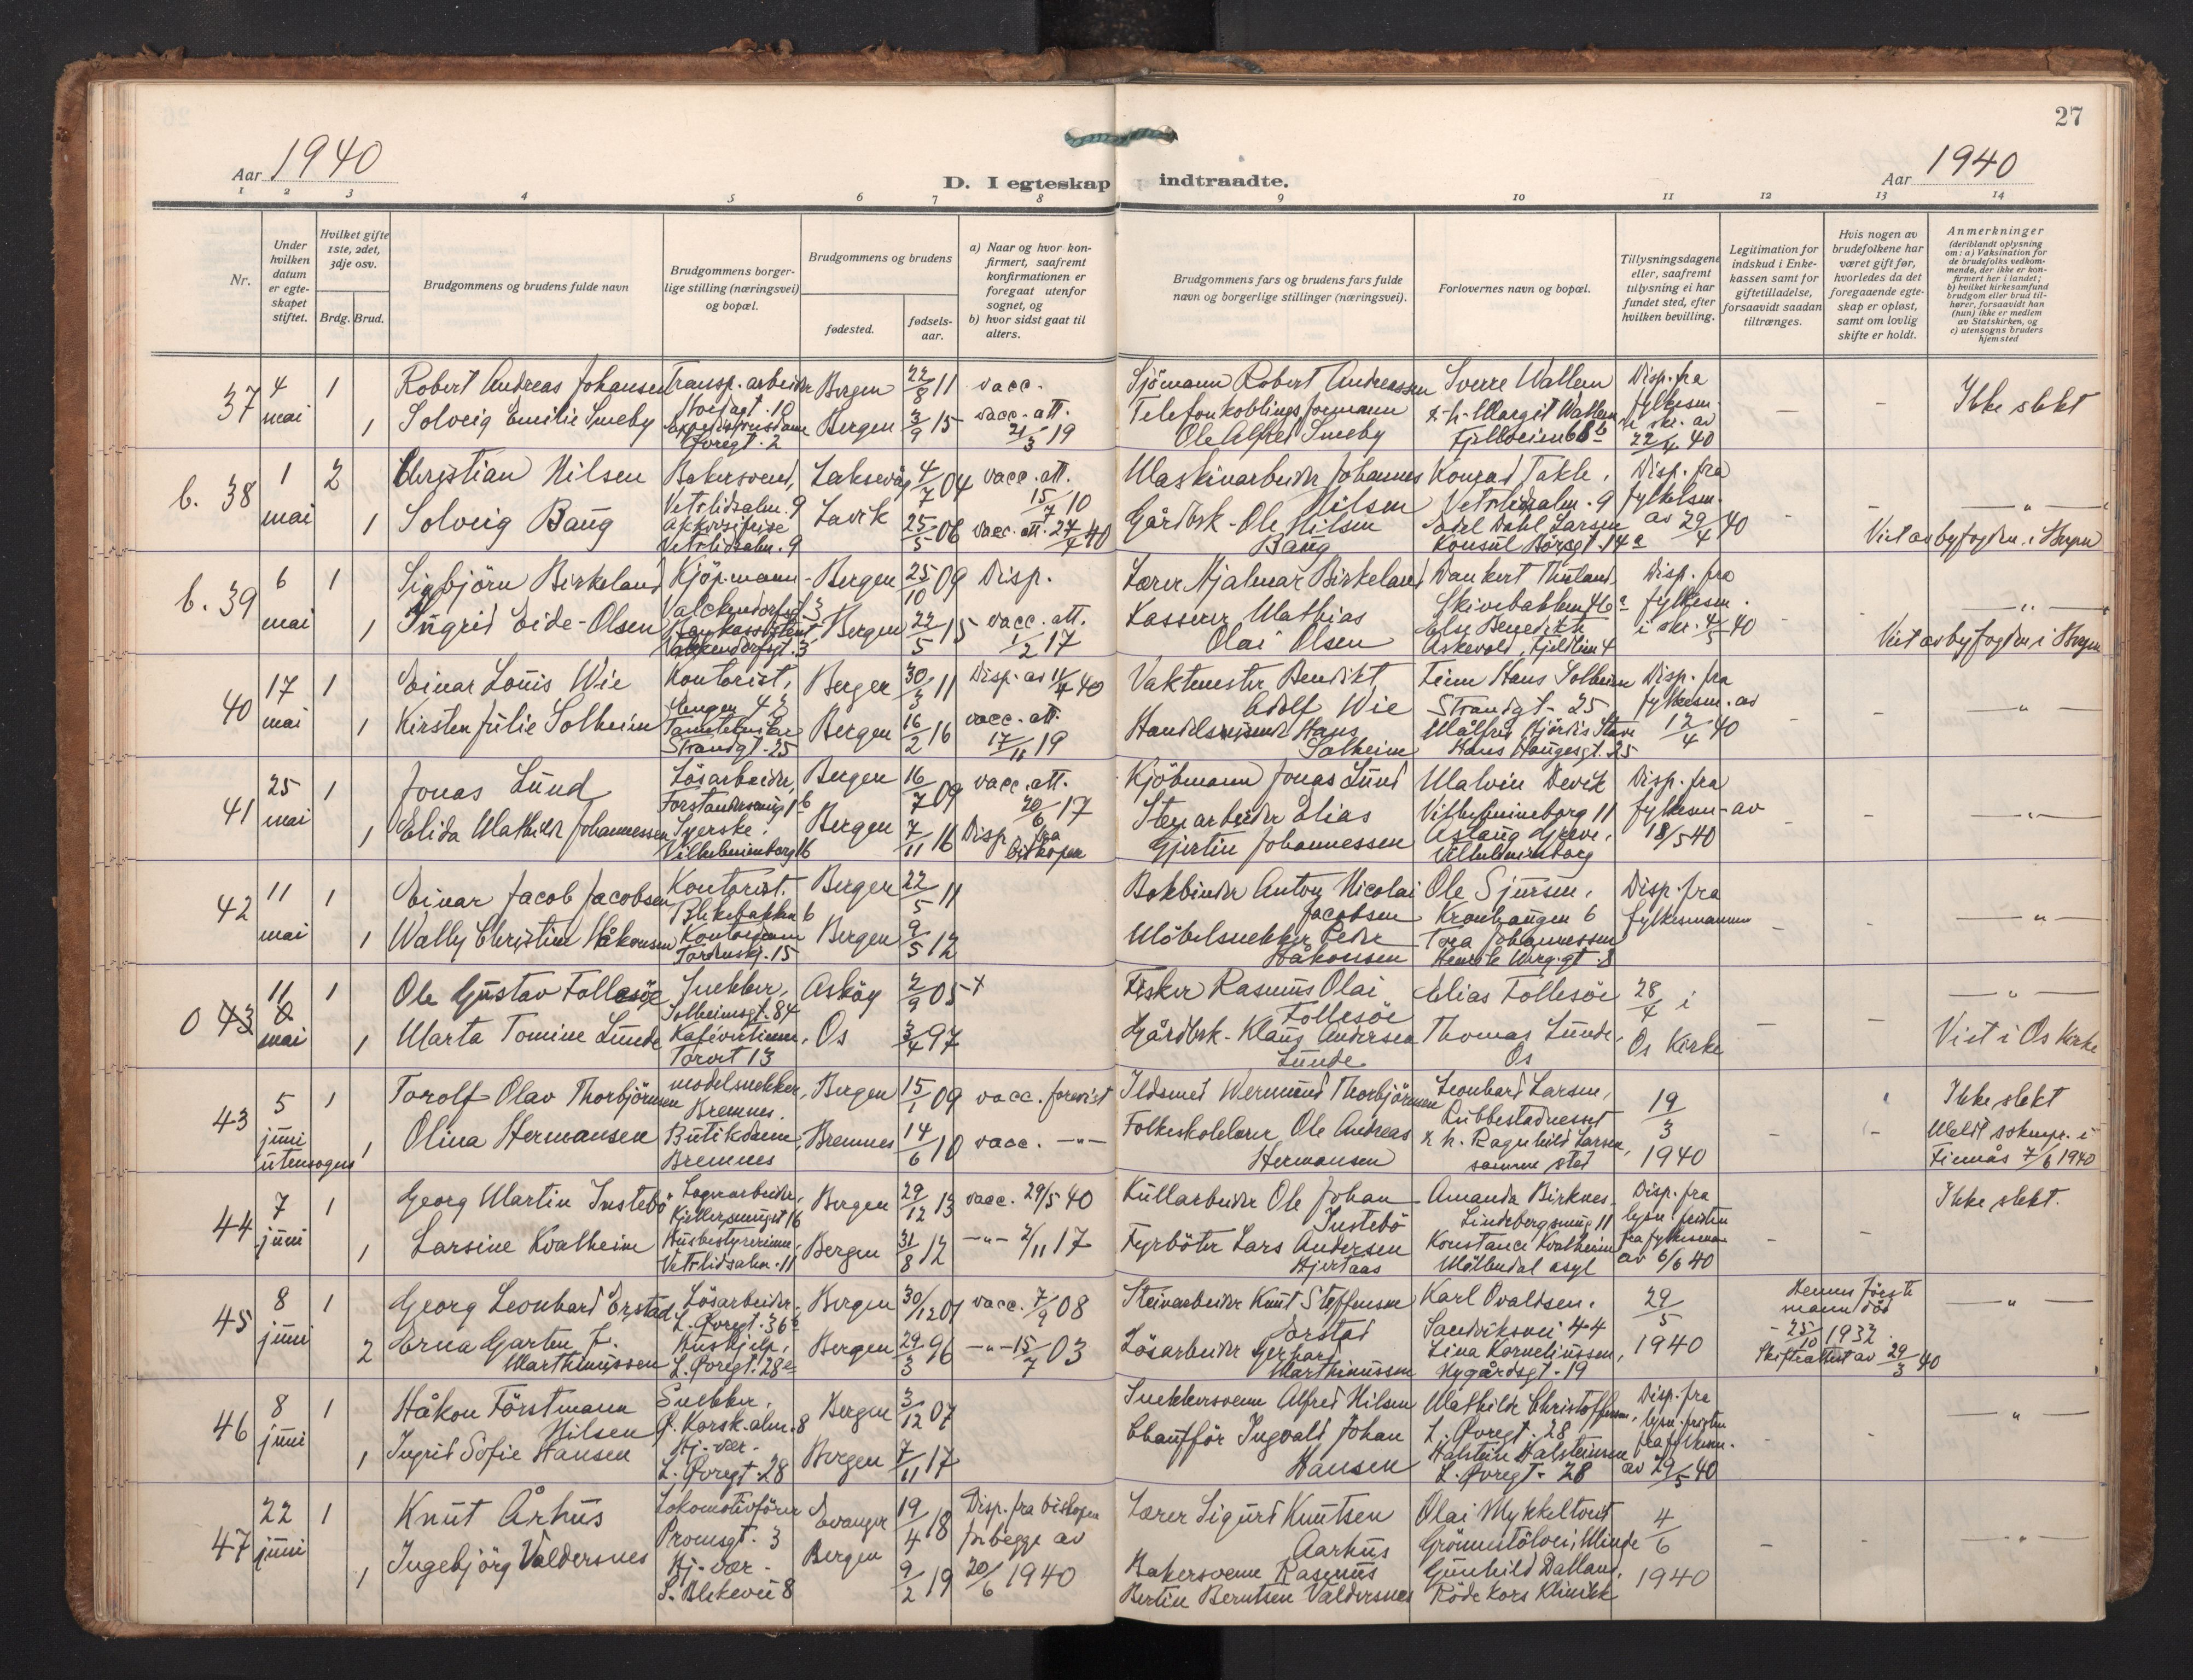 27
Aar 1940
D. I egteskap indtraadte.
Aar 1940
1 2 3 4 5 6 7 8 9 10 11 12 13 14
Nr.
Under hvilken datum er egteskapet stiftet.
Hvilket gifte 1ste, 2det, 3dje osv.
Brdg. Brud.
Brudgommens og brudens fulde navn
Brudgommens borgerlige stilling (næringsvei) og bopæl.
Brudgommens og brudens
fødested.
fødselsaar.
a) Naar og hvor konfirmert, saafremt konfirmationen er foregaat utenfor sognet, og
b) hvor sidst gaat til alters.
Brudgommens fars og brudens fars fulde navn og borgerlige stillinger (næringsvei).
Forlovernes navn og bopæl.
Tillysningsdagene eller, saafremt tillysning ei har fundet sted, efter hvilken bevilling.
Legitimation for indskud i Enkekassen samt for giftetilladelse, forsaavidt saadan tiltrænges.
Hvis nogen av brudefolkene har været gift før, hvorledes da det foregaaende egteskap er opløst, samt om lovlig skifte er holdt.
Anmerkninger (deriblandt oplysning om: a) Vaksination for de brudefolks vedkommende, der ikke er konfirmert her i landet; b) hvilket kirkesamfund brudgom eller brud tilhører, forsaavidt han (hun) ikke er medlem av Statskirken, og c) utensogns bruders hjemsted
37 4 mai 1 Robert Andreas Johansen Transp. arbeider Bergen 22/8 11 vacc. Sjömann Robert Andreassen Sverre Wallem Disp. fra fylkesm. Ikke slekt
1 Solveig Emilie Smeby Øvregt. 2 Bergen 3/9 15 vacc. att. 21/3 19 Telefonkoblingsformann Ole Alfred Smeby Margit Wallem Fjellveien 68b 22/4 40
b. 38 1 mai 2 Christian Nilsen Bakersvend, Vetrlidsalm. 9 Laksevåg 4/7 04 vacc. att. 15/7 10 Maskinarbeider Johannes Nilsen Konrad Takle, Vetrlidsalm. 9 Disp. fra fylkesm. av 29/4 40 - " -
1 Solveig Baug Vetrlidsalm. 9 Lavik 25/5 06 vacc. att. 27/4 40 Gårdbrk. Ole Nilsen Baug Edel Dahl Larsen Konsul Börsgt. 14a Viet av byfogden i Bergen
b. 39 6 mai 1 Sigbjörn Birkeland Kjöpmann Valckendorfsgt. 3 Bergen 25/10 09 Disp. Lærer Hjalmar Birkeland Dankert Thuland, Skivebakken 46a Disp. fra fylkesm. - " -
1 Ingrid Eide-Olsen Valckendorfsgt. 3 Bergen 22/5 15 vacc. att. 1/2 17 Kasserer Mathias Olai Olsen Else Benedikte Askevold, Fjeldlien 4 i skr. 4/5 40 Viet av byfogden i Bergen
40 17 mai 1 Einar Louis Wie Kontorist, Engen 42 Bergen 30/3 11 Disp. av 11/4 40 Vaktmester Benedikt Adolf Wie Finn Hans Solheim Strandgt. 25 Disp. fra fylkesm. av 12/4 40 - " -
1 Kirsten Julie Solheim Strandgt. 25 Bergen 16/2 16 vacc. att. 17/11 19 Hans Solheim Målfrid Hjördis Stave Hans Haugesgt. 25
41 25 mai 1 Jonas Lund Lösarbeider, Forstandersmug 1b Bergen 16/7 09 vacc. att. 20/6 17 Kjöbmann Jonas Lund Malvin Devik Vilhelmineborg 11 Disp. fra fylkesm. av 18/5 40 - " -
1 Elida Mathilde Johannessen Syerske. Vilhelmineborg 16 Bergen 7/11 16 Disp. fra biskopen Stenarbeider Elias Gjertin Johannessen Aslaug Greve, Vilhelmineborg
42 11 mai 1 Einar Jacob Jacobsen Kontorist. Blekebakken 6 Bergen 22/5 11 Bokbinder Anton Nicolai Jacobsen Ole Sjursen, Kronhaugen 6 Disp. fra fylkesmannen - " -
1 Wally Christine Håkonsen Tordenskj. 15 Bergen 9/5 12 Möbelsnekker Peder Håkonsen Tora Johannessen Henrik Werg.gt. 8
0 43 11 mai 1 Ole Gustav Follesöe Snekker, Solheimsgt. 84 Asköy 2/9 05 + Fisker Rasmus Olai Follesöe Elias Follesöe 28/4 i Os Kirke - " -
1 Marta Tomine Lunde Kafévertinne, Torvet 13 Os 3/4 97 Gårdbrk. Klaus Andersen Lunde Thomas Lunde, Os Viet i Os Kirke
43 5 juni utensogns 1 Torolf Olav Thorbjörnsen modelsnekker, Bremnes. Bergen 15/1 09 vacc. forevist Ildsmed Wermund Thorbjörnsen Leonhard Larsen, Rubbestadnesset 19/3 1940 Ikke slekt
1 Olina Hermansen Butikdame, Bremnes Bremnes 14/6 10 vacc. - " - Folkeskolelærer Ole Andreas Hermansen Ragnhild Larsen, samme sted Meldt soknepr. i Finnås 7/6 1940
44 7 juni 1 Georg Martin Instebö Lagerarbeider, Bergen 29/12 13 vacc. 29/5 40 Kullarbeider Ole Johan Instebö Amanda Birknes, Lindebergsmug 11 Disp. fra lysn. fristen fra fylkesmann av 6/6 40 Ikke slekt.
1 Larsine Kvalheim Husbestyrerinne, Vetrlidsalm. 11 Bergen 31/8 12 - " - 2/11 17 Fyrböter Lars Andersen Hjertaas Konstance Kvalheim Möllendal asyl
45 8 juni 1 Georg Leonhard Erstad Lösarbeider. L. Øvregt. 36a Bergen 30/12 01 vacc. 7/9 08 Steinarbeider Knut Steffensen Erstad Karl Osvaldsen. Sandviksvei 44 29/5 1940 Hennes förste mann död 25/10 1932. Skifteattest av 29/3 40 - " -
2 Erna Garten f. Marthinussen Hushjelp, L. Øvregt. 28a Bergen 29/3 96 - " - 15/7 03 Lösarbeider Gerhard Marthinussen Lina Kornelinssen, Nygårdsgt. 19
46 8 juni 1 Håkon Förstmann Nilsen Snekker, Ø. Korsk.alm. 8 Bergen 3/12 07 Snekkersvenn Alfred Nilsen Mathilde Christoffersen, L. Øvregt. 28 Disp. fra lysn. fristen fra fylkesm. av 29/5 40 - " -
1 Ingrid Sofie Hansen Hj. vær. L. Øvregt. 28 Bergen 7/11 17 Chauffför Ingvald Johan Hansen Halstein Halsteinsen L. Øvregt. 28
47 22 juni 1 Knut Århus Lokomotivförer Promsgt. 3 Evanger 19/4 18 Disp. fra biskopen for begge av 20/6 1940 Lærer Sigurd Knutsen Aarhus Olai Mykkeltvedt Grönnestölvei, Minde 4/6 1940 - " -
1 Ingebjörg Valdersnes Hj. vær. S. Blekevei 8 Bergen 9/2 19 Bakersvenn Rasmus Bertin Berntsen Valdersnes Gunhild Dalland, Röde Kors Klinikk